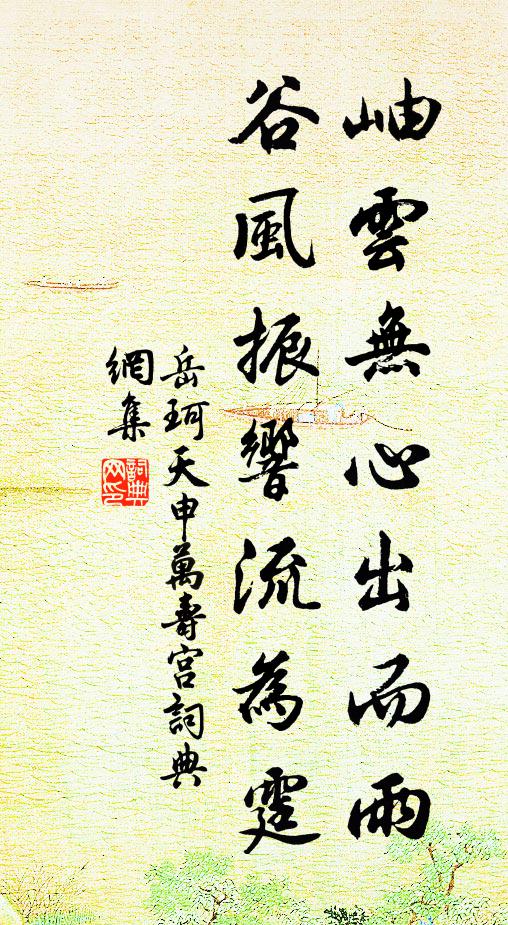 岫雲無心出而雨
谷風振響流為霆
岳珂天申萬壽宮詞典
網集
詞典網印